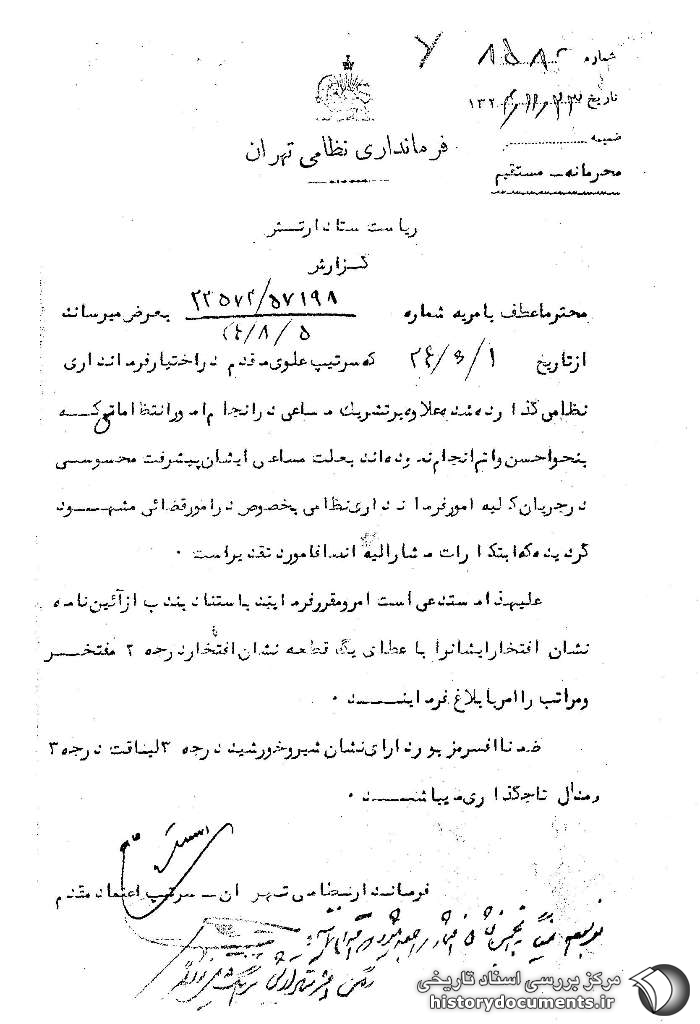 شماره ۸۵۸۲
تاریخ ۲۳
ضمیمه
محرمانه - مستقیم
فرمانداری نظامی تهران
ریاست ستاد ارتش
گزارش
محترما عطف بامریه شماره ۲۳۵۷۲/۵۷۱۹۸ بعرض میرساند
۲۴/۸/۵
از تاریخ ۲۴/۶/۱ که سرتیپ علوی مقدم در اختیار فرمانداری
نظامی گذارده شده علاوه بر تشریک مساعی در انجام امور انتظاماتی که
بنحو احسن و اتم انجام نموده اند بعلت مساعی ایشان پیشرفت محسوسی
در جریان کلیه امور فرمانداری نظامی بخصوص در امور قضائی مشهود
گردیده که ابتکارات مشارالیه انصافا مورد تقدیر است .
علیهذا مستدعی است امر و مقرر فرمایند باستناد بند ب از آئین نامه
نشان افتخار ایشانرا با عطای یک قطعه نشان افتخار درجه ۲ مفتخر
و مراتب را امر بابلاغ فرمایند .
ضمنا افسر مزبور دارای نشان شیر و خورشید درجه ۳ لیاقت درجه ۳
و مدال تاجگذاری میباشند .
فرماندار نظامی تهران - سرتیپ اعتماد مقدم
مرکز بررسی اسناد تاریخی
historydocuments.ir